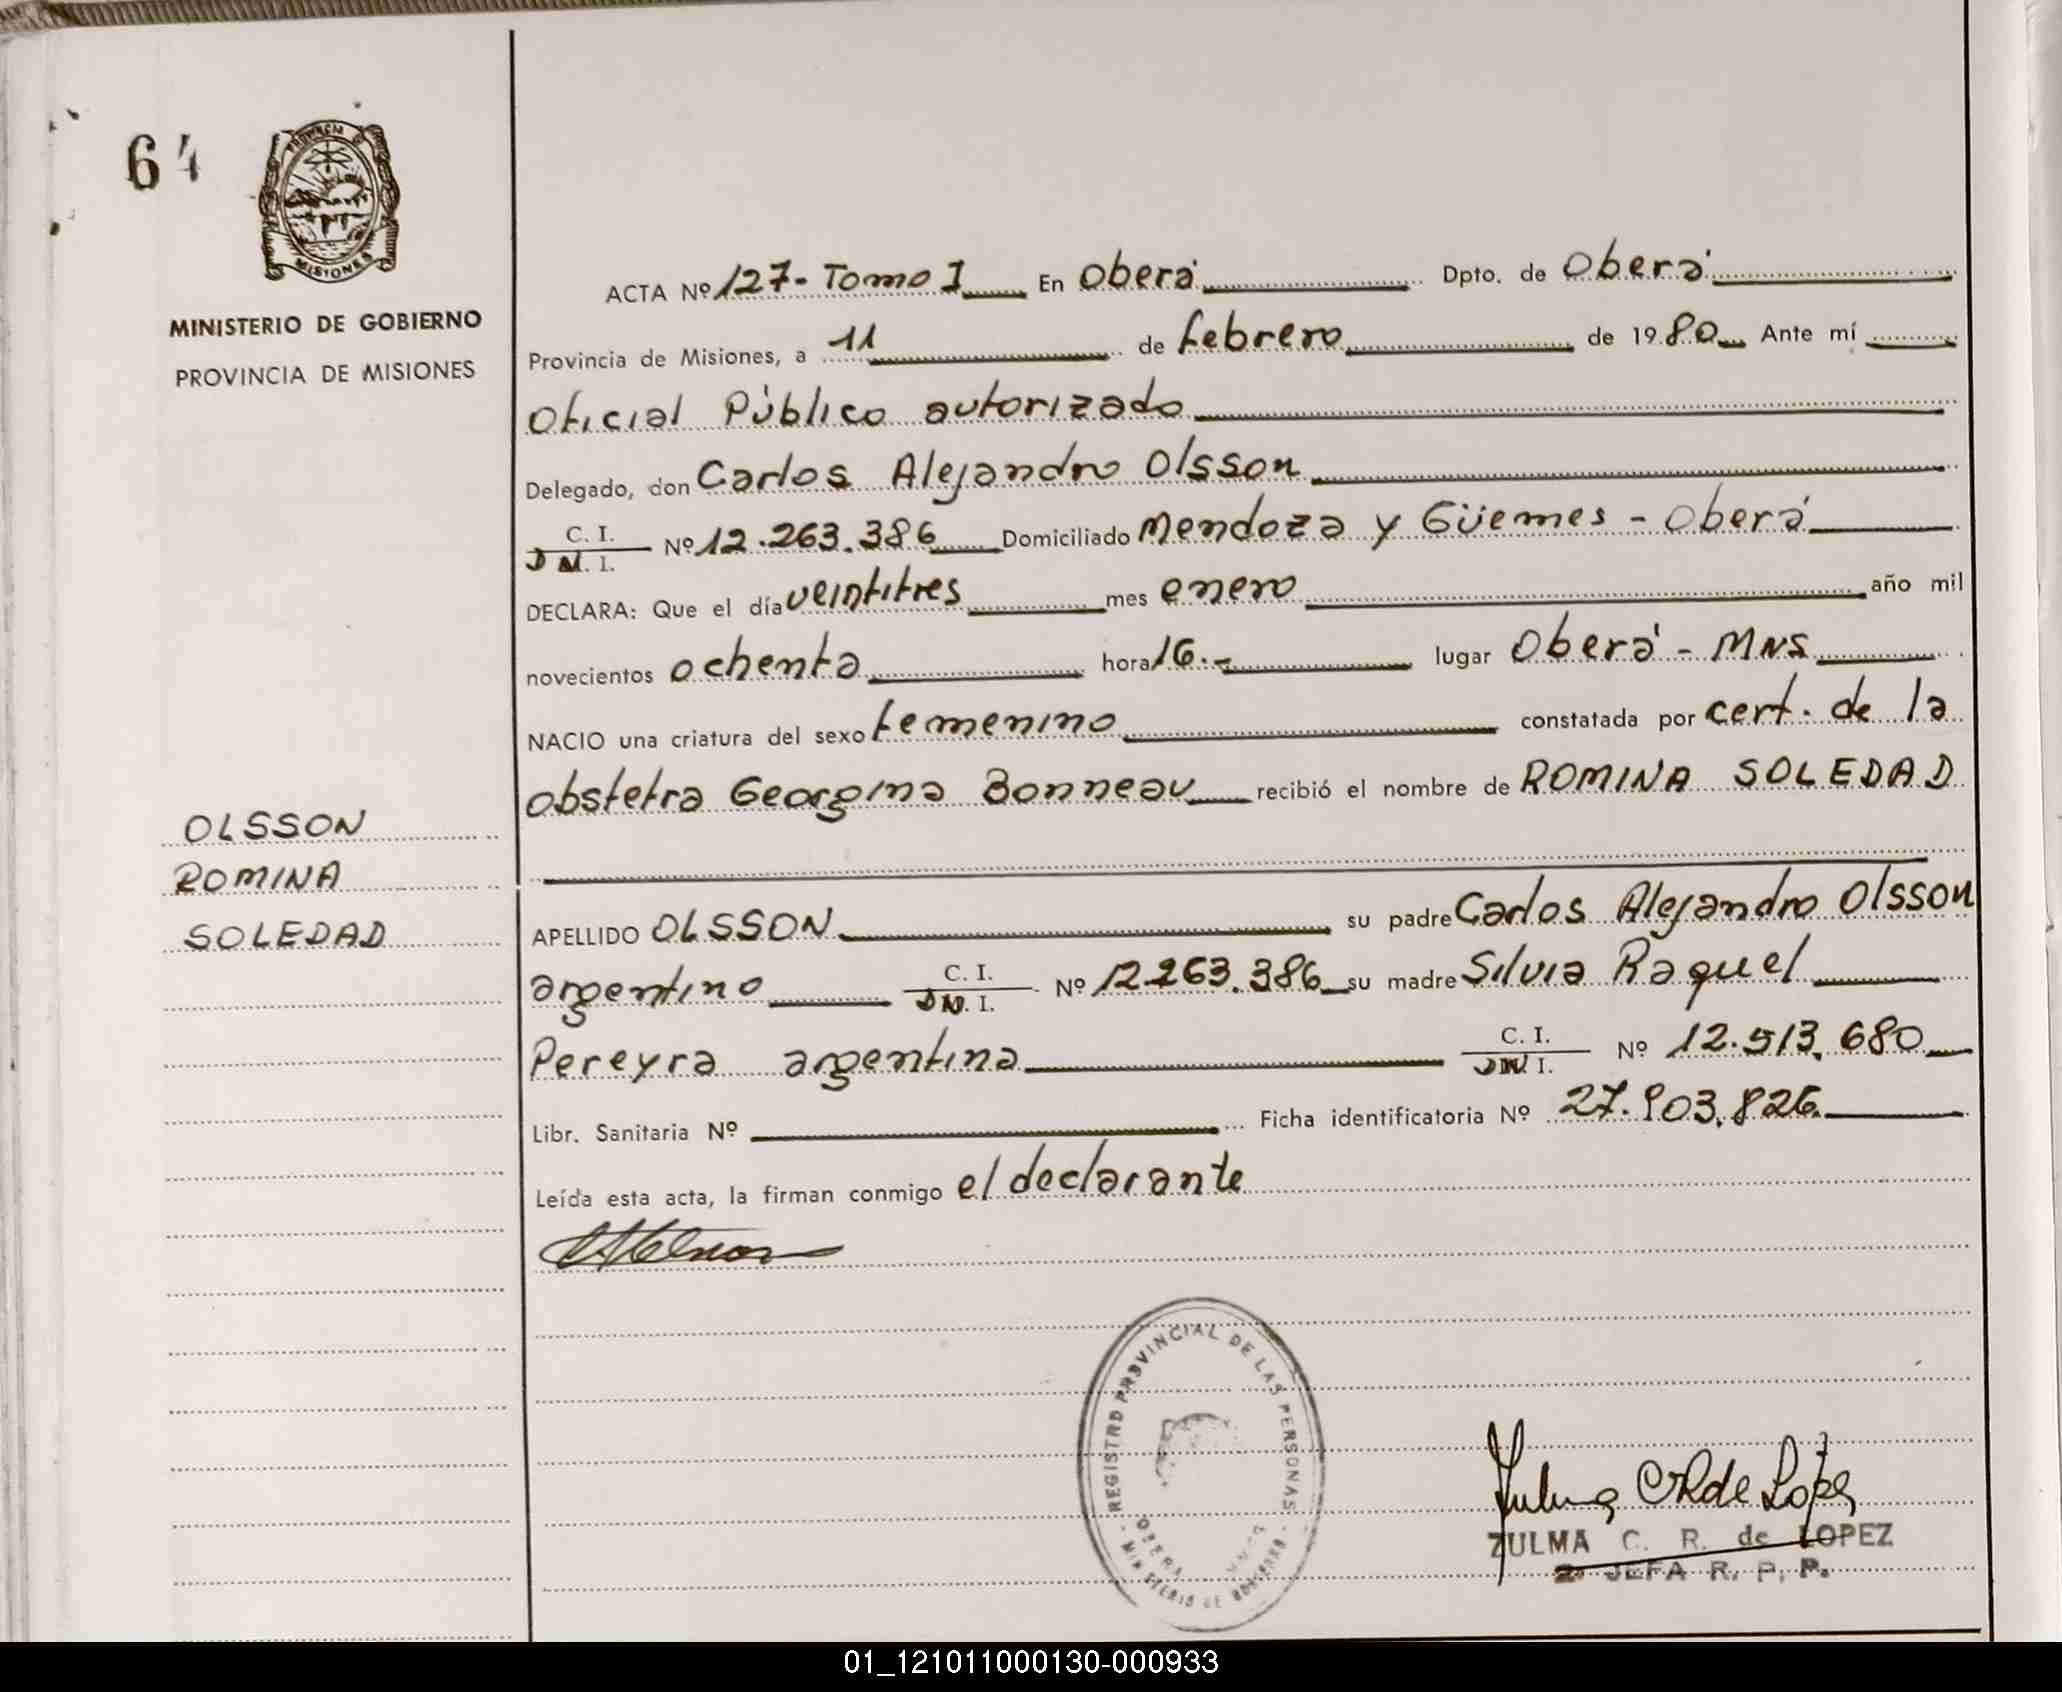 64
PROVINCIA DE
MISIONES
MINISTERIO DE GOBIERNO
PROVINCIA DE MISIONES
OLSSON
ROMINA
SOLEDAD
ACTA Nº 127- Tomo I En Oberá Dpto. de Oberá
Provincia de Misiones, a 11 de febrero de 1980 Ante mí
Oficial Público autorizado
Delegado, don Carlos Alejandro Olsson
C. I.
D N. I. Nº 12.263.386 Domiciliado Mendoza y Güemes - Oberá
DECLARA: Que el día veintitres mes enero año mil
novecientos ochenta hora 16.- lugar Oberá - MNS
NACIO una criatura del sexo femenino constatada por cert. de la
obstetra Georgina Bonneau recibió el nombre de ROMINA SOLEDAD
APELLIDO OLSSON su padre Carlos Alejandro Olsson
argentino C. I.
D N. I. Nº 12.263.386 su madre Silvia Raquel
Pereyra argentina C. I.
D N. I. Nº 12.513.680
Libr. Sanitaria Nº Ficha identificatoria Nº 27.903.826.
Leída esta acta, la firman conmigo el declarante
REGISTRO PROVINCIAL DE LAS PERSONAS
OBERA
MINISTERIO DE GOBIERNO
Zulma C R de Lopez
ZULMA C. R. de LOPEZ
2ª JEFA R. P. P.
01_121011000130-000933